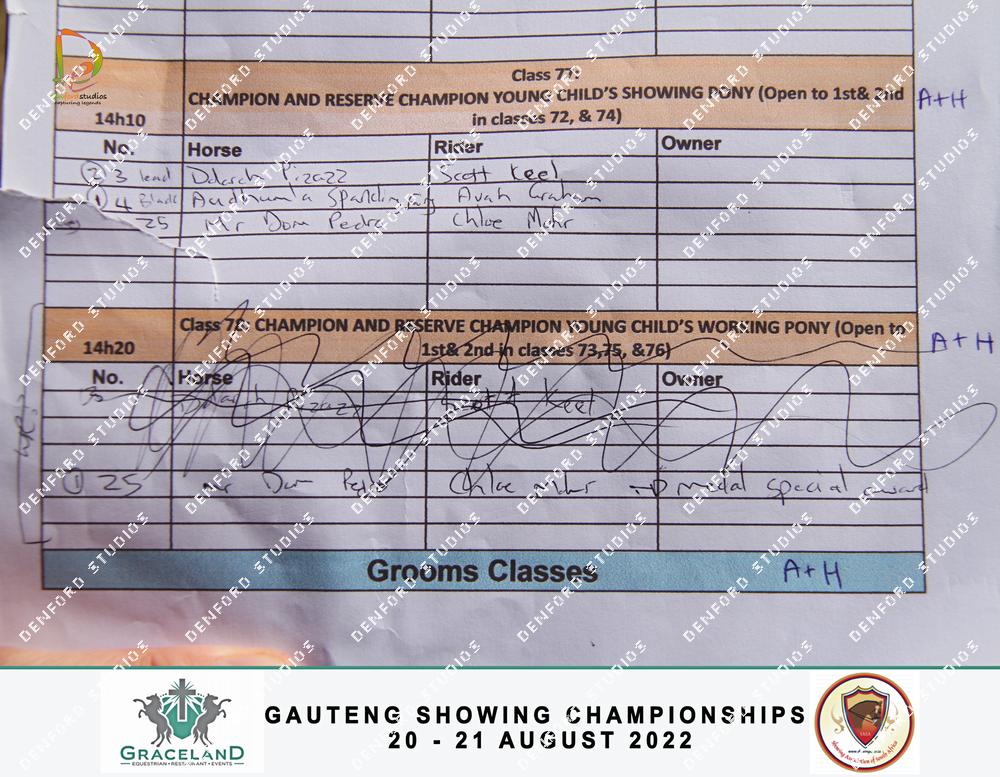 denfordstudios
capturing legends
Class 77:
CHAMPION AND RESERVE CHAMPION YOUNG CHILD'S SHOWING PONY (Open to 1st& 2nd
in classes 72, & 74)
A+H
14h10
No. Horse Rider Owner
2 3 lead Pizazz Scott Keel
1 4 Avah Graham
25 Mr Dom Pedro Chloe Mohr
Class 78: CHAMPION AND RESERVE CHAMPION YOUNG CHILD'S WORKING PONY (Open to
1st& 2nd in classes 73,75, &76)
A+H
14h20
No. Horse Rider Owner
3 Pizazz Scott Keel
1 25 Mr Dom Pedro Chloe Mohr → medal special award
Grooms Classes A+H
GRACELAND
EQUESTRIAN • RESTAURANT • EVENTS
GAUTENG SHOWING CHAMPIONSHIPS
20 - 21 AUGUST 2022
DENFORD STUDIOS